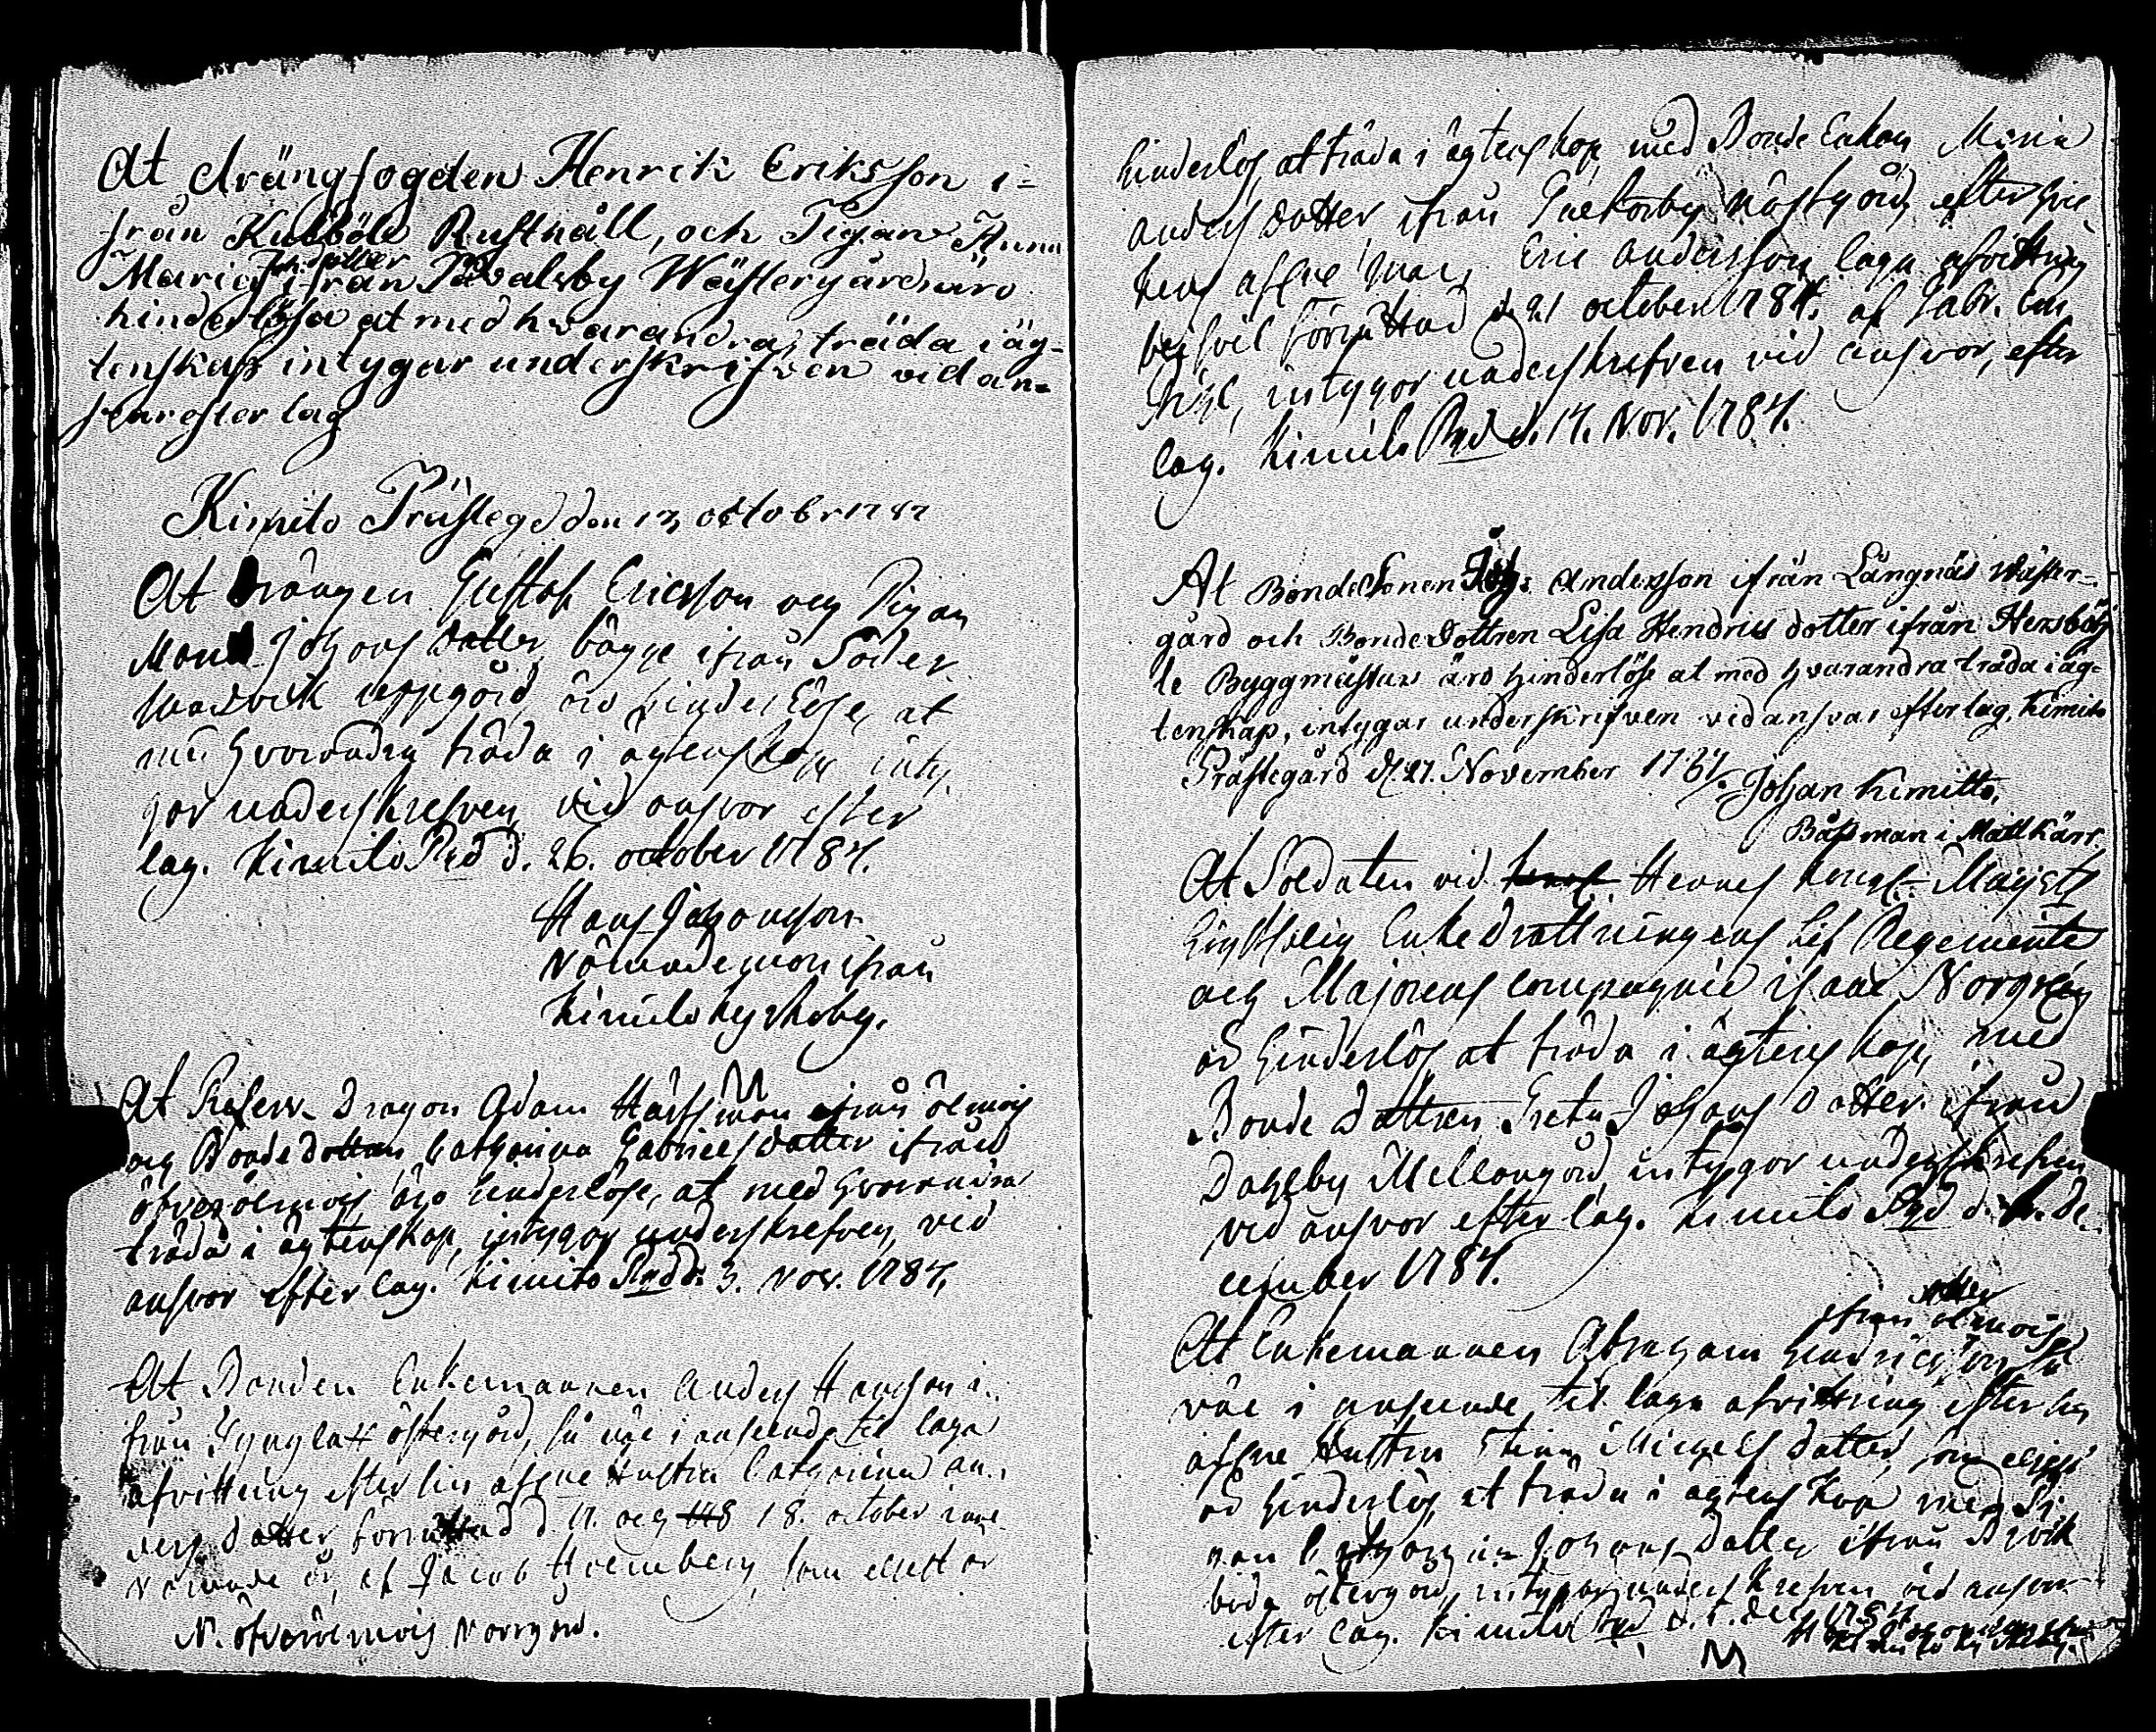 At drängfogden Henrik Eriksson i=
från Kulböle Rusthåll, och Pigan Anna
Maria Joh. dotter ifrån Påvalsby Wästergård äro
hinderlösa at med hvarandra träda i äg=
tenskap intygar underskrifven vid an=
svar efter lag
Kimito Prästegd den 13 october 1787
At drängen Gustaf Ericsson och Pigan
Johans dotter bägge ifrån Söder
uppgård äro hinderlöse, at
med hvarandra träda i ägtenskap inty
gar underskrefven vid ansvar efter
lag. Kimito Pgd d. 26. october 1787.
Hans Johansson
Nämndeman ifrån
Kimito Kyrkoby.
At Reserv-Dragon Adam ifrån ölmois
och Bonde dottren Catharina Gabriels dotter ifrån
öfverölmois äro hinderlöse, at med hvarandra
träda i ägtenskap, intygar underskrefven, vid
ansvar efter lag. Kimito Pgd d. 3. Nov. 1787.
At Bonden Enkemannen Anders Hansson i
från östergård, så väl i anseende til laga
afvittring efter sin aflne Hustru Catharina An
ders dotter, förrättad d. 17. och 18. october inne
varande år, af Jacob Holmberg, som elljest är
N. öfverölmois Norrgård.
hinderlös, at träda i ägtenskap med Bonde Enkan Maria
Anders dotter ifrån Norrgård, efter hvil
kens aflne man Eric Andersson laga afvittring
ock är förrättad d. 21 october 1787. af Gabr. Em
intygar underskrefven vid ansvar, efter
lag. Kimito Pgd d. 17. Nov. 1787.
At Bonde Sonen Joh: Andersson ifrån Långnäs Wäster-
gård och Bonde Dottren Lisa Hendrics dotter ifrån Hersbö
le Byggmästars äro hinderlöse at med hvarandra träda i äg=
tenskap, intygar underskrifven vid ansvar efter lag, Kimito
Prästegård d. 27. November 1787.
Johan Kimitto,
Båtsman i Mattkärr.
At Soldaten vid Hennes Kongl. Majsts
Högstsalig Enkedrottningens Lif Regemente
och Majorens Compagnie Isaac Norgren
är hinderlös at träda i ägtenskap, med
Bonde dottren Greta Johans dotter ifrån
Dahlby Mellangård intygar underskrefven
vid ansvar efter lag. Kimito Pgd d. 1. De-
cember 1787.
ifrån ölmois
At Enkemannen Abraham Hendricsson så
väl i anseende til laga afvittring efter sin
aflne Hustru Stina Michels dotter, som elljest
är hinderlös, at träda i ägtenskap med Pi
gan Catharina Johans dotter ifrån
östergård, intygar underskrefven vid ansvar
efter lag. Kimito Pgd d. 1. Dec. 1787.